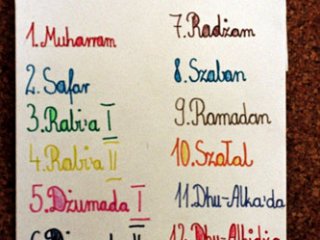 1. Muharram
2. Safar
3. Rabi'a I
4. Rabi'a II
5. Dżumada I
7. Radżam
8. Szaban
9. Ramadan
10. Szałal
11. Dhu-Alka'da
12. Dhu-Alhidża